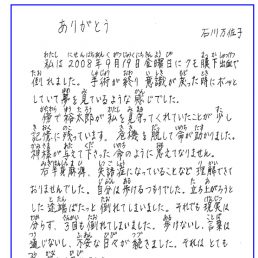 ありがとう
石川万佐子
私は2008年9月19日金曜日にクモ膜下出血で
倒れました。手術が終り意識が戻った時にボーッと
していて夢を見ているような感じでした。
傍で裕太郎が私を見守ってくれていたことが少し
記憶に残っています。危機を脱して命が助かりました。
神様が与えて下さった命のように思えてなりません。
右半身麻痺、失語症になっていることなど理解できて
おりませんでした。自分は歩けるつもりでした。立ち上がろうと
した途端ばたっと倒れてしまいました。それでも現実は
分らず、3回も倒れてしまいました。歩けないし、言葉は
通じないし、不安な日々が続きました。それは、とても